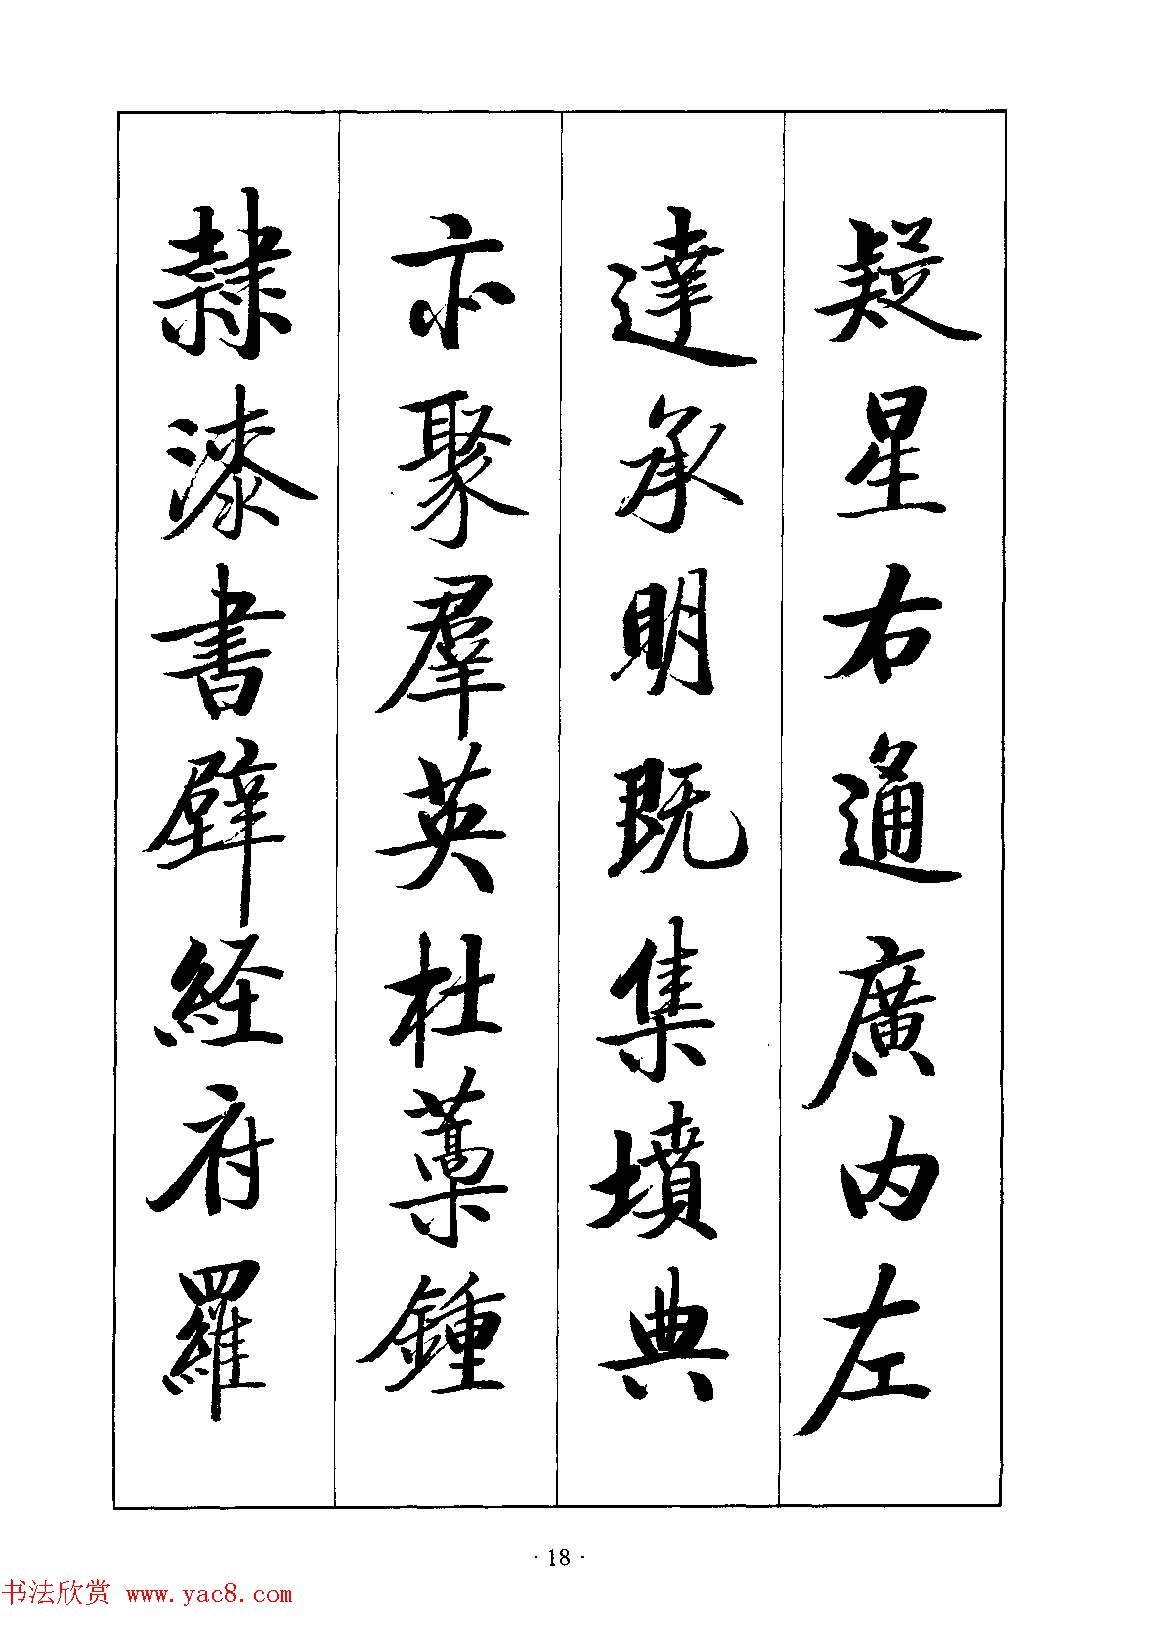 疑星右通廣内左
達承明既集墳典
亦聚羣英杜藁鍾
隸漆書壁経府羅
· 18 ·
书法欣赏 www.yac8.com